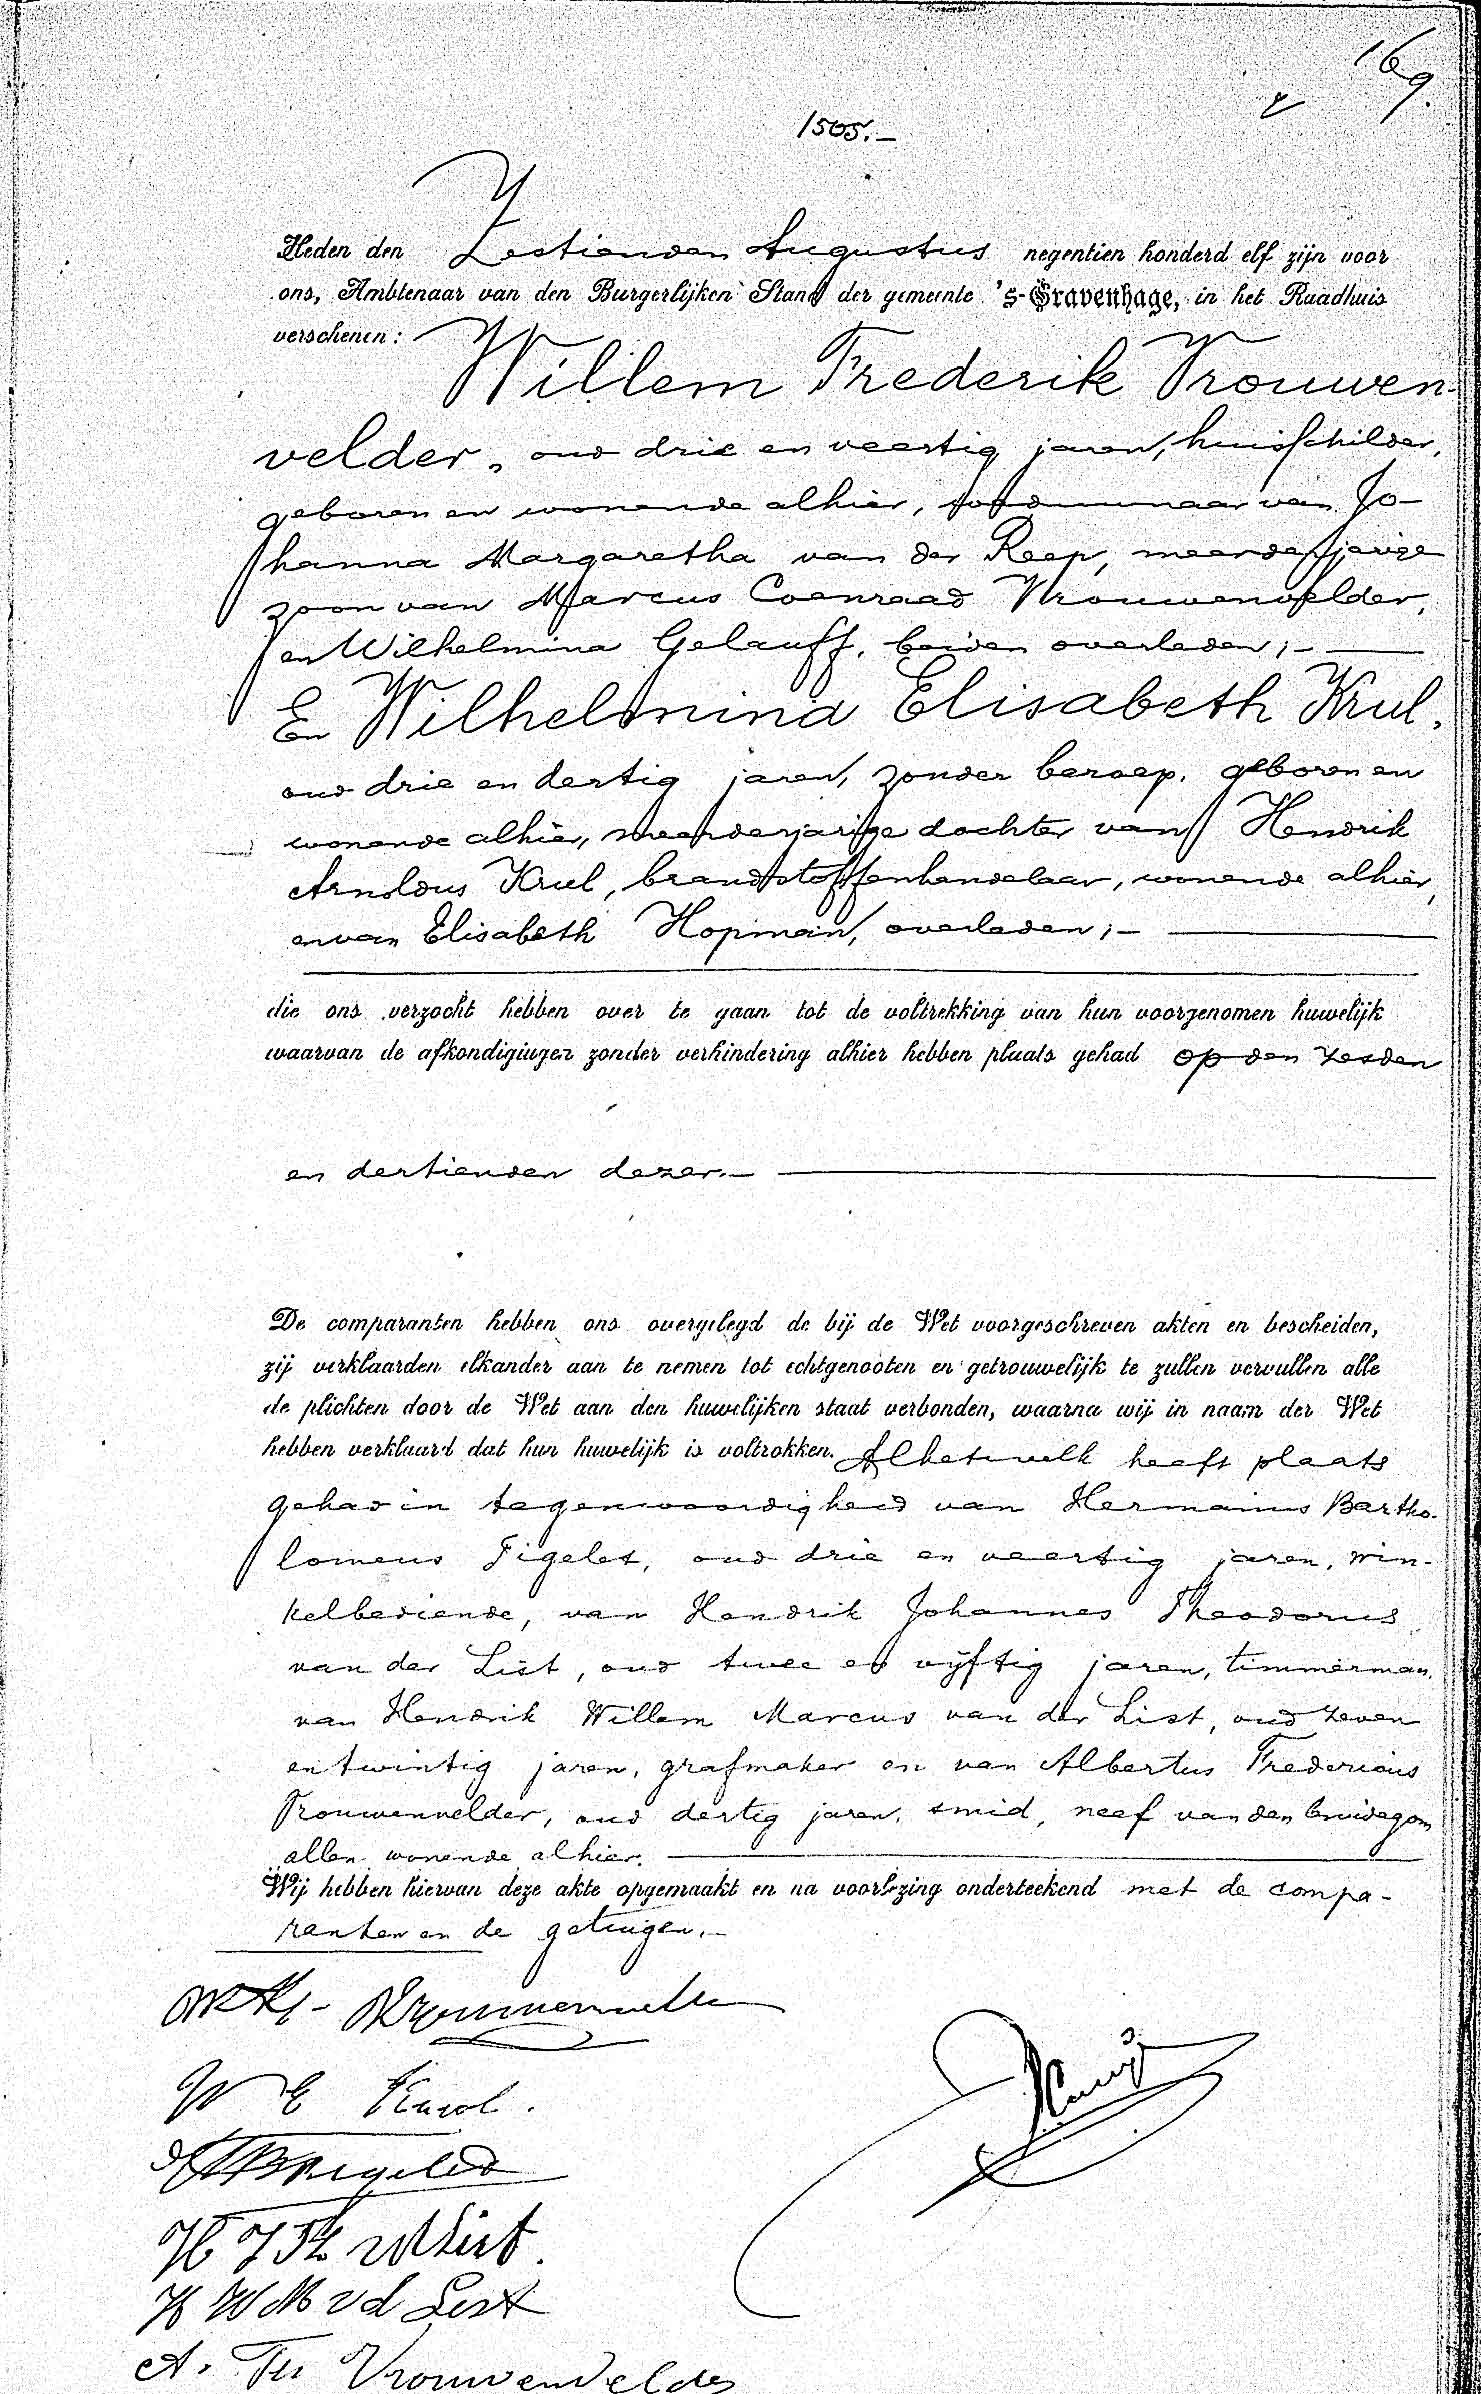 169.
1505.-
Heden den Zestienden Augustus negentien honderd elf zijn voor
ons, Ambtenaar van den Burgerlijken Stand der gemeente 's-Gravenhage, in het Raadhuis
verschenen:
Willem Frederik Vrouwen-
velder, oud drie en veertig jaren, huisschilder,
geboren en wonende alhier, weduwnaar van Jo-
hanna Margaretha van der Reep, meerderjarige
zoon van Marcus Coenraad Vrouwenvelder,
en Wilhelmina Gelauff, beiden overleden;-
En Wilhelmina Elisabeth Krul,
oud drie en dertig jaren, zonder beroep, geboren en
wonende alhier, meerderjarige dochter van Hendrik
Arnoldus Krul, brandstoffenhandelaar, wonende alhier,
en van Elisabeth Hopman, overleden;-
die ons verzocht hebben over te gaan tot de voltrekking van hun voorgenomen huwelijk
waarvan de afkondigingen zonder verhindering alhier hebben plaats gehad op den zesden
en dertienden dezer.-
De comparanten hebben ons overgelegd de bij de Wet voorgeschreven akten en bescheiden,
zij verklaarden elkander aan te nemen tot echtgenooten en getrouwelijk te zullen vervullen alle
de plichten door de Wet aan den huwelijken staat verbonden, waarna wij in naam der Wet
hebben verklaard dat hun huwelijk is voltrokken. Al hetwelk heeft plaats
gehad in tegenwoordigheid van Hermanus Bartho-
lomeus Figelet, oud drie en veertig jaren, win-
kelbediende, van Hendrik Johannes Theodorus
van der List, oud twee en vijftig jaren, timmerman,
van Hendrik Willem Marcus van der List, oud zeven
en twintig jaren, grafmaker en van Albertus Fredericus
Vrouwenvelder, oud dertig jaren, smid, neef van den bruidegom
allen wonende alhier.
Wij hebben hiervan deze akte opgemaakt en na voorlezing onderteekend met de compa-
ranten en de getuigen.-
Vrouwenvelder
W E Krul.
HB Figelet
H J Th vd List.
H W M v d List
A. Fr Vrouwenvelder